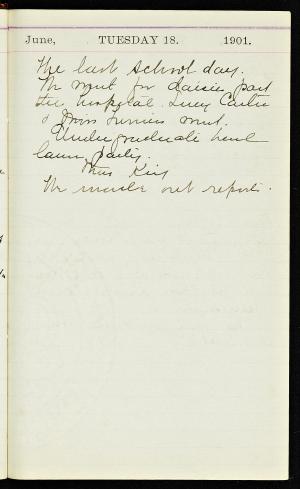 June, TUESDAY 18. 1901.
The last school day.
We went for daisies past
the hospital. Lucy Carlie
& Miss went.
Undergraduate have
lawn party.
Miss King
We made out reports.